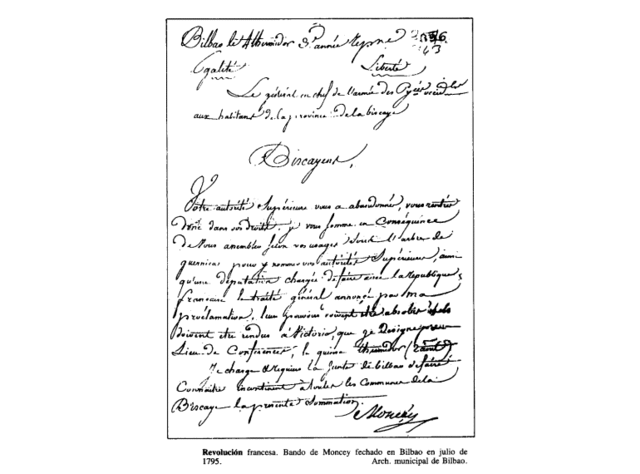 Bilbao le Thermidor 3e année
Egalité Liberté
Le général en chef de l'armée des
aux habitans de la province de la biscaye
Biscayens,
Votre autorité Supérieure vous a abandonné, vous
donc dans vos droits. je vous somme en Conséquence
de vous assembler selon vos usages sous l'arbre de
guernica pour y nommer vos autorités Supérieures, ainsi
qu'une députation chargée de faire avec la République
francaise le traité général annoncé par ma
proclamation. leur pouvoirs
doivent etre rendus à Victoria, que je Designe pour
Lieu de Conférences, le quinze thermidor
Je charge & Requiers la Junte de bilbao de faire
Connaitre a toutes les Communes de la
Biscaye la présente Sommation.
Moncey
Revolución francesa. Bando de Moncey fechado en Bilbao en julio de
1795. Arch. municipal de Bilbao.